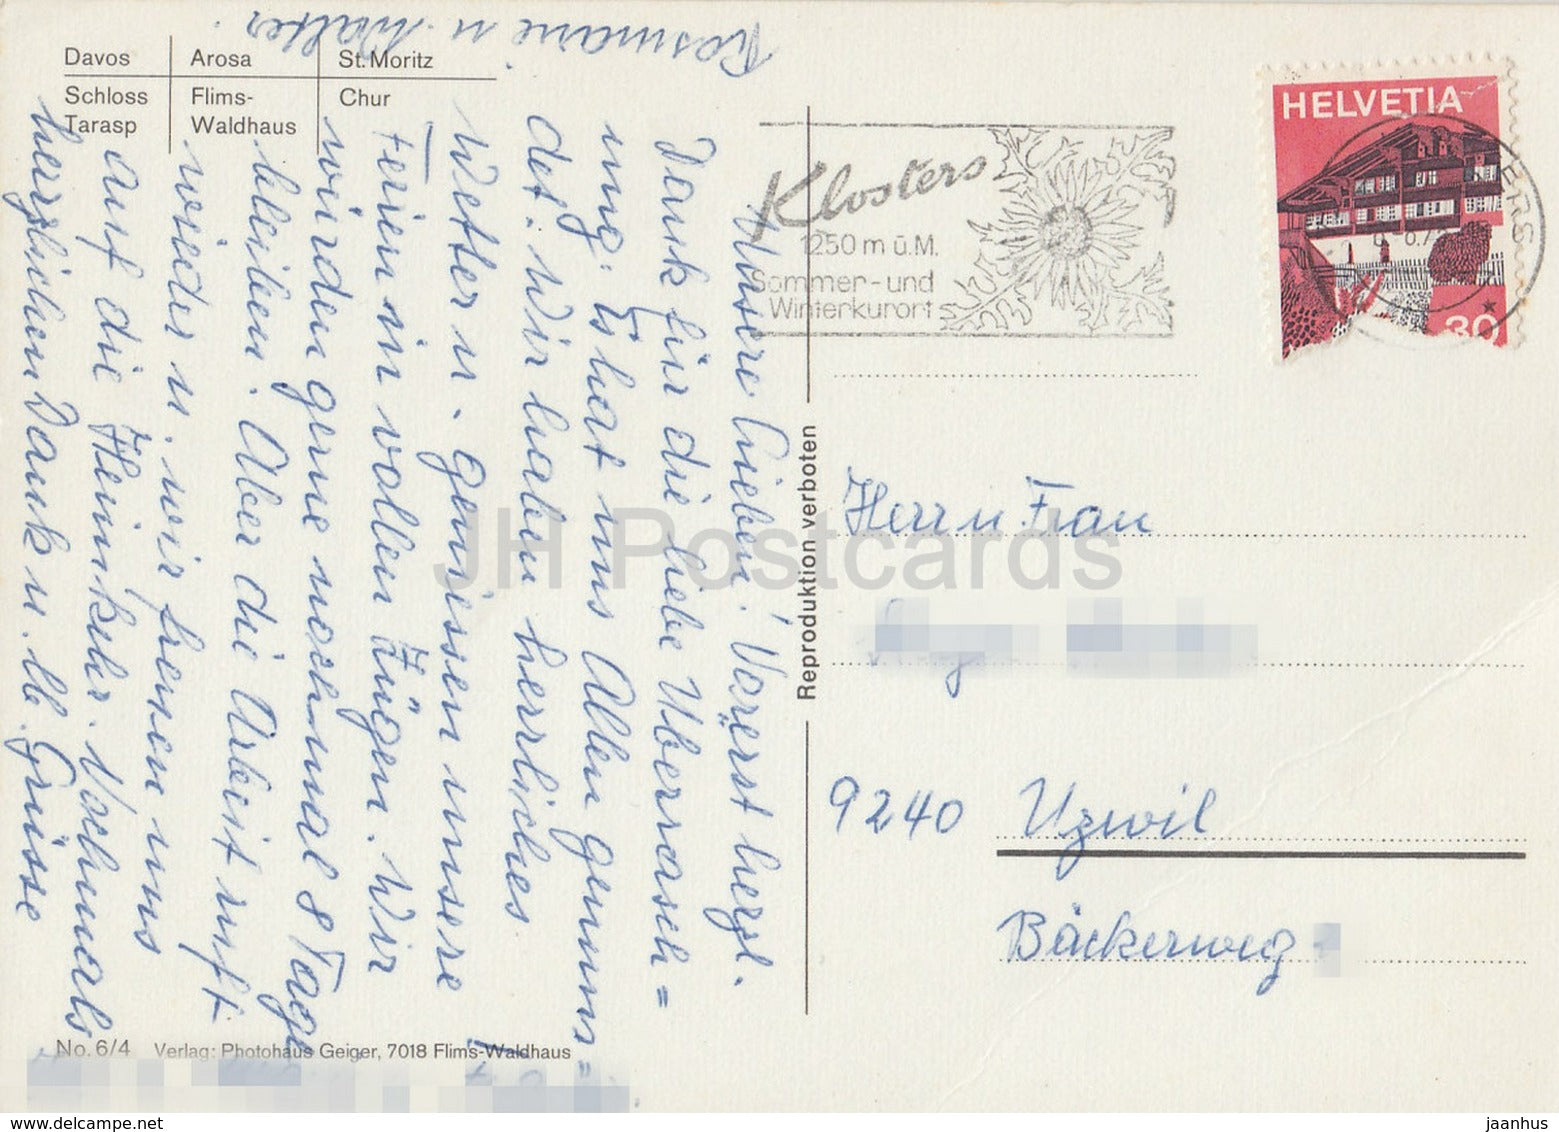 Davos
Arosa
St. Moritz
Schloss
Tarasp
Flims-
Waldhaus
Chur
Unsere Lieben! Vorerst herzl.
Dank für die liebe Überrasch=
ung. Es hat uns Allen gemun=
det. Wir haben herrliches
Wetter u. geniessen unsere
Ferien in vollen Zügen. Wir
würden gerne nochmal 8 Tage
bleiben. Aber die Arbeit ruft
wieder u. wir freuen uns
auf die Heimkehr. Nochmals
herzlichen Dank u. lb. Grüsse
Rosmarie u. Walter.
Klosters
1250 m ü.M.
Sommer- und
Winterkurort
HELVETIA
30
KLOSTERS
Reproduktion verboten
Herr u Frau
9240 Uzwil
Bäckerweg
No. 6/4 Verlag: Photohaus Geiger, 7018 Flims-Waldhaus
JH Postcards
www.delcampe.net
jaanhus